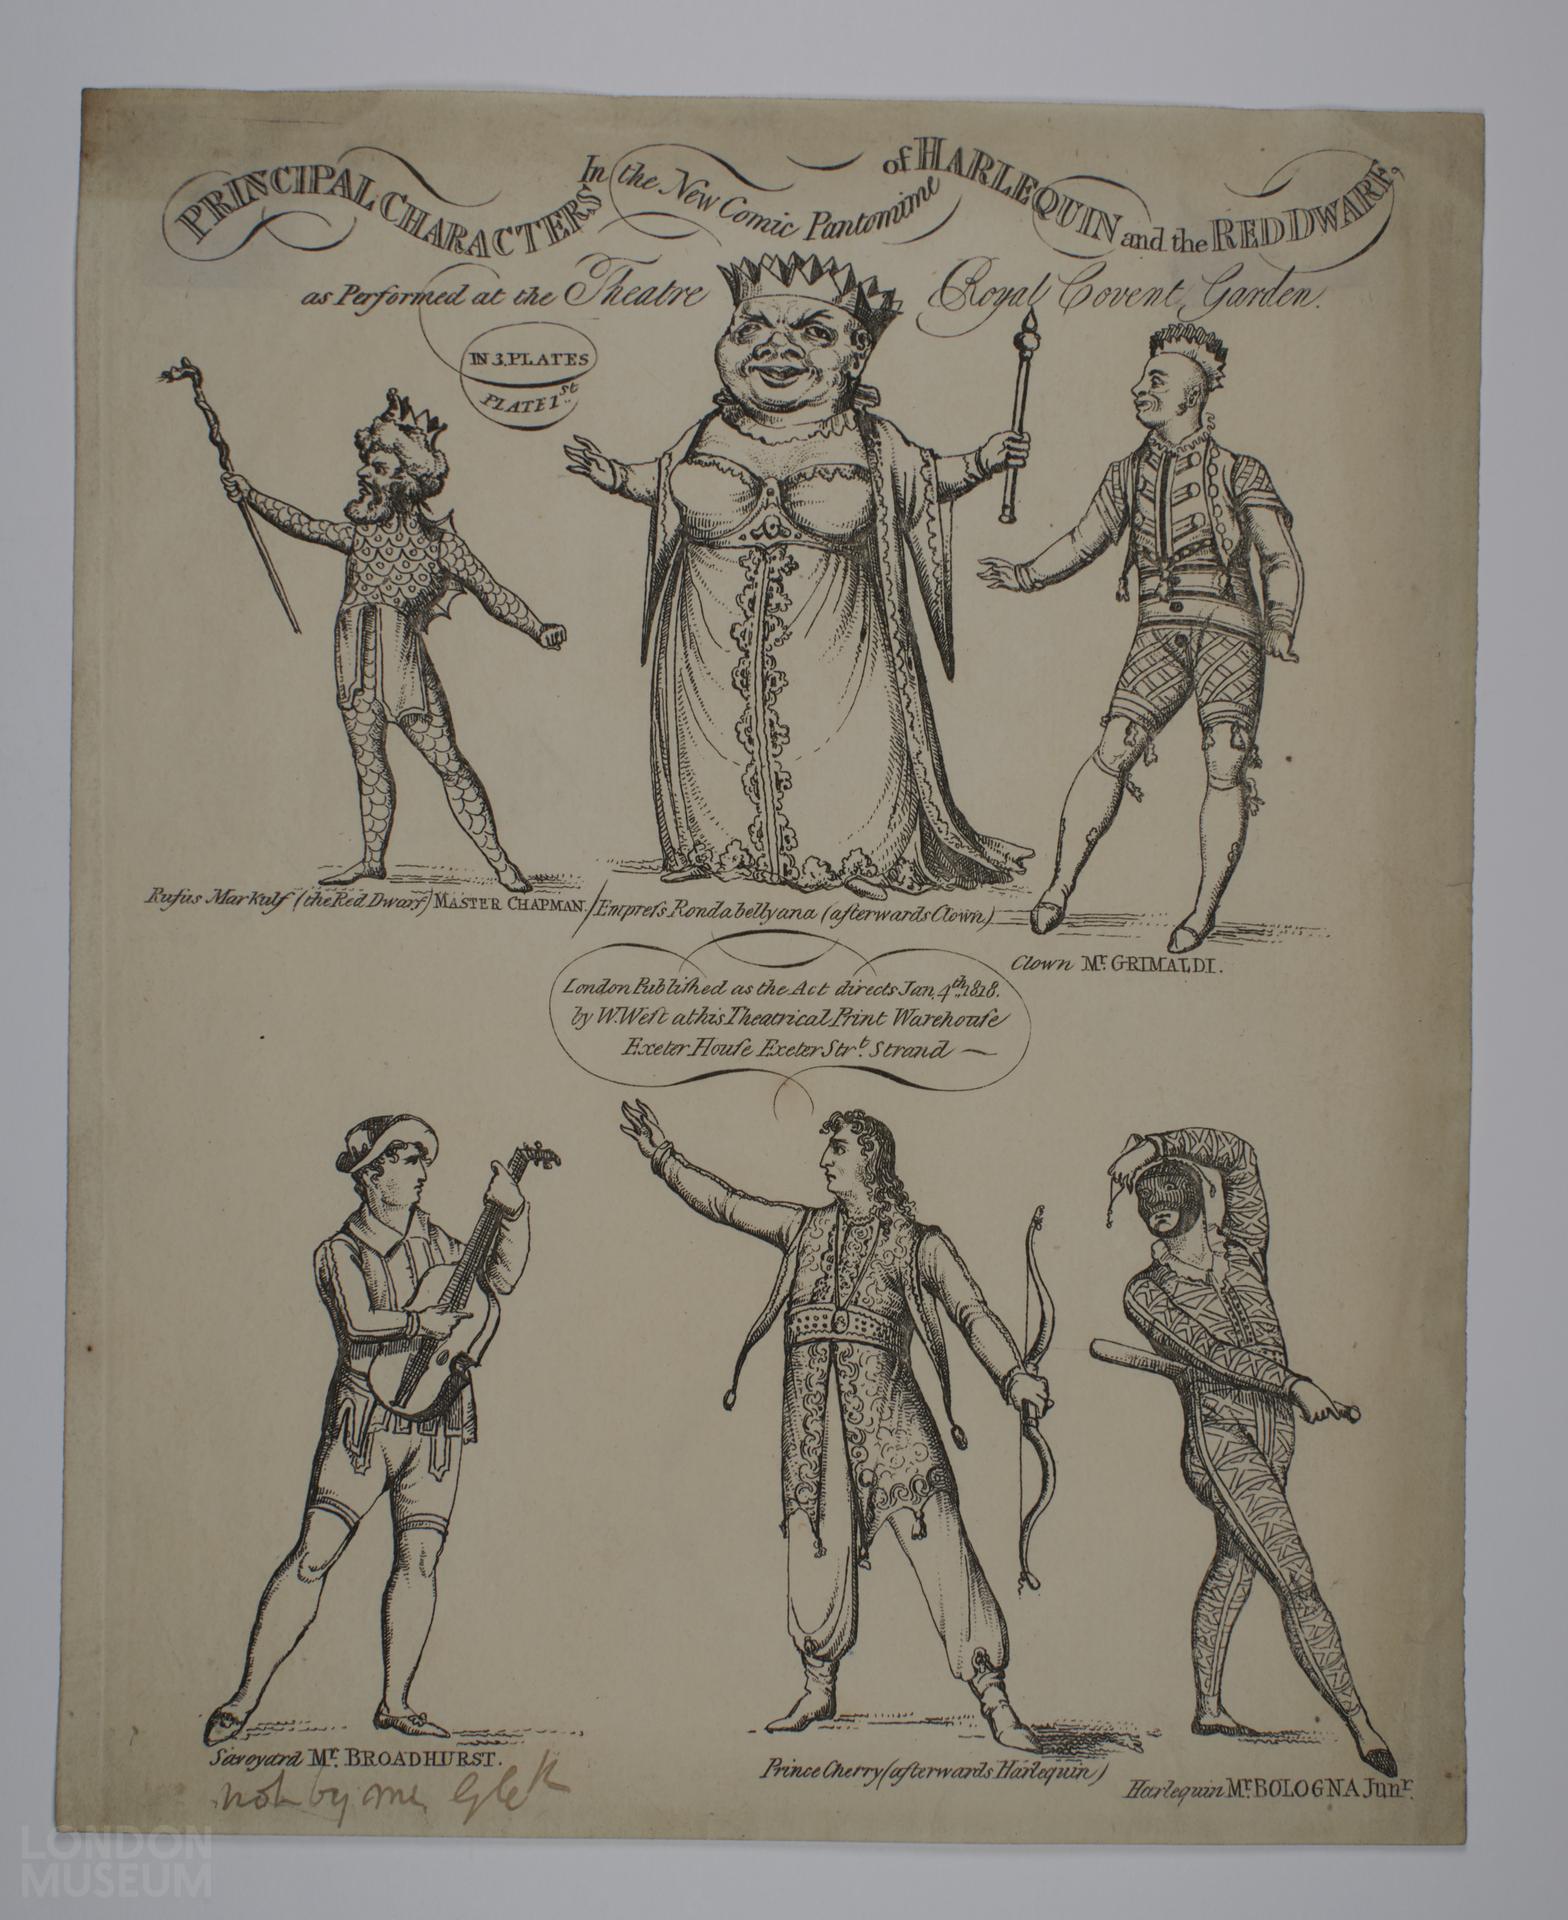 PRINCIPAL CHARACTERS In the New Comic Pantomime of HARLEQUIN and the RED DWARF,
as Performed at the Theatre Royal Covent Garden.
IN 3. PLATES
PLATE 1st
Rufus Markulf (the Red Dwarf) MASTER CHAPMAN.
Empreſs Rondabellyana (afterwards Clown)
Clown Mr. GRIMALDI.
London Publiſhed as the Act directs Jan. 4th. 1818.
by W. Weſt at his Theatrical Print Warehouſe
Exeter Houſe Exeter Strt. Strand —
Savoyard Mr. BROADHURST.
Prince Cherry (afterwards Harlequin)
Harlequin Mr. BOLOGNA Junr.
not by me
LONDON
MUSEUM